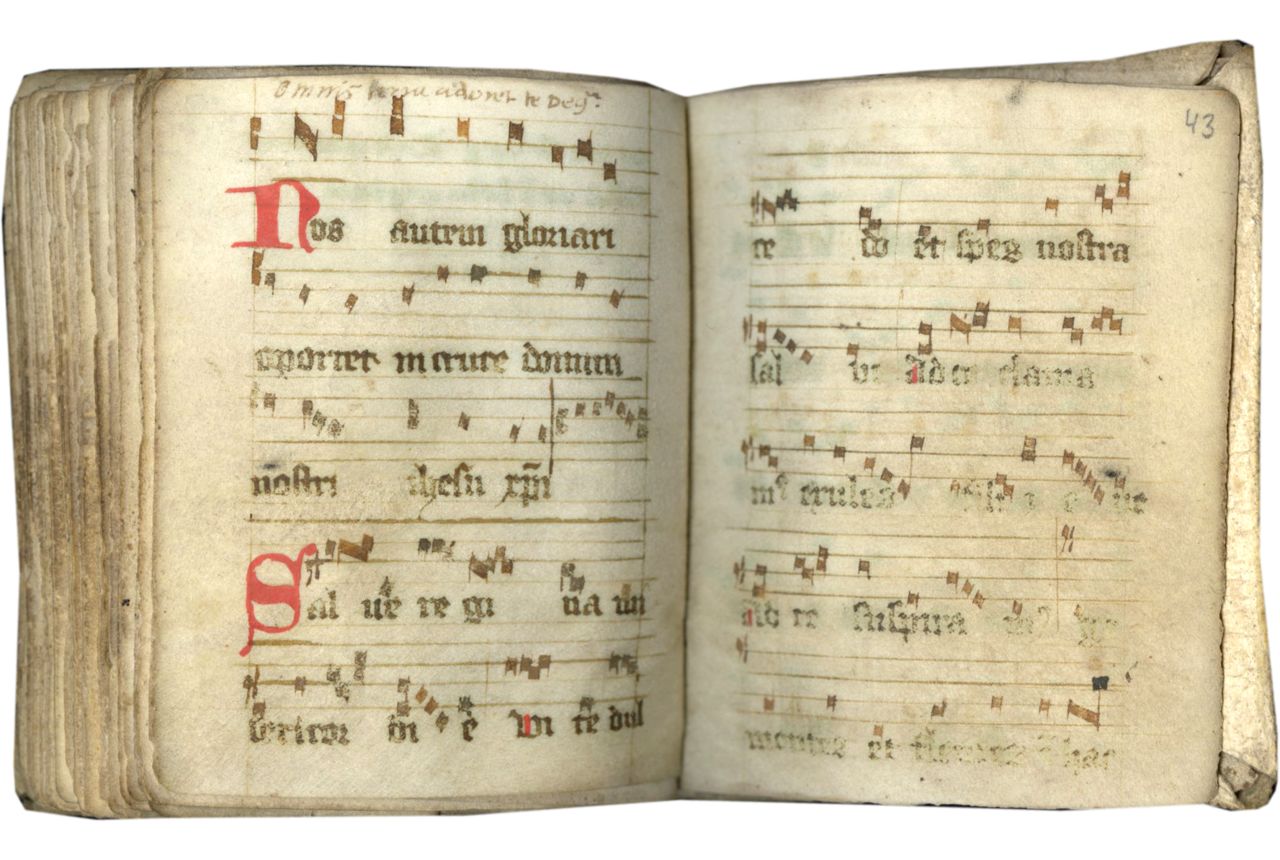 Omnis terra adoret te deus
Nos autem gloriari
oportet in cruce domini
nostri ihesu xpi
Sal ue re gi na mi
sericor di e vi te dul
43
ce do et spes nostra
sal ue Ad te clama
mus exules filii e ue
Ad te suspira mus ge
mentes et flentes in hac